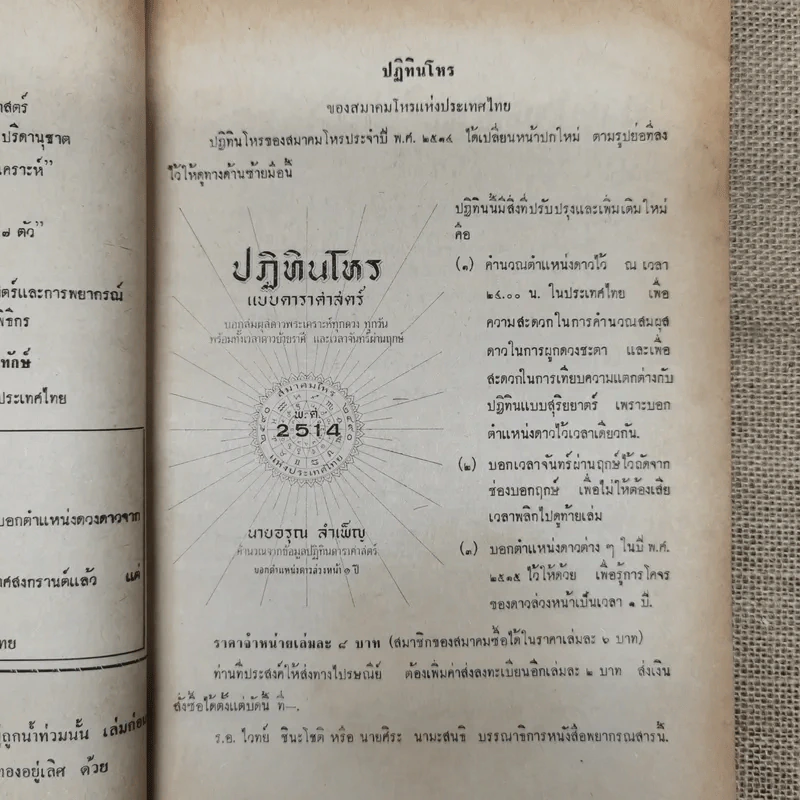 าสตร์
ปริตานุชาต
เคราะห์"
๗ ตัว"
ตร์และการพยากรณ์
พิธิกร
ทักษ์
ประเทศไทย
บอกตำแหน่งดวงดาวจาก
ศสงกรานต์แล้ว แต่
ทย
ถูกน้ำท่วมนั้น เล่มก่อน
ทองอยู่เลิศ ด้วย
ปฏิทินโหร
ของสมาคมโหรแห่งประเทศไทย
ปฏิทินโหรของสมาคมโหรประจำปี พ.ศ. ๒๕๑๔ ได้เปลี่ยนหน้าปกใหม่ ตามรูปย่อที่ลง
ไว้ให้ดูทางด้านซ้ายมือนี้
ปฏิทินโหร
แบบดาราศาสตร์
บอกสมผุสดาวพระเคราะห์ทุกดวง ทุกวัน
พร้อมทั้งเวลาดาวย้ายราศี และเวลาจันทร์ผ่านฤกษ์
สมาคมโหร
พ.ศ.
2514
แห่งประเทศไทย
๒๔๙๐
นายอรุณ ลำเพ็ญ
คำนวณจากข้อมูลปฏิทินดาราศาสตร์
บอกตำแหน่งดาวล่วงหน้า ๑ ปี
ปฏิทินนี้มีสิ่งที่ปรับปรุงและเพิ่มเติมใหม่
คือ
(๑) คำนวณตำแหน่งดาวไว้ ณ เวลา
๒๔.๐๐ น. ในประเทศไทย เพื่อ
ความสะดวกในการคำนวณสมผุส
ดาวในการผูกดวงชะตา และเพื่อ
สะดวกในการเทียบความแตกต่างกับ
ปฏิทินแบบสุริยยาตร์ เพราะบอก
ตำแหน่งดาวไว้เวลาเดียวกัน.
(๒) บอกเวลาจันทร์ผ่านฤกษ์ไว้ถัดจาก
ช่องบอกฤกษ์ เพื่อไม่ให้ต้องเสีย
เวลาพลิกไปดูท้ายเล่ม
(๓) บอกตำแหน่งดาวต่าง ๆ ในปี พ.ศ.
๒๕๑๕ ไว้ให้ด้วย เพื่อรู้การโคจร
ของดาวล่วงหน้าเป็นเวลา ๑ ปี.
ราคาจำหน่ายเล่มละ ๘ บาท (สมาชิกของสมาคมซื้อได้ในราคาเล่มละ ๖ บาท)
ท่านที่ประสงค์ให้ส่งทางไปรษณีย์ ต้องเพิ่มค่าส่งลงทะเบียนอีกเล่มละ ๒ บาท ส่งเงิน
สั่งซื้อได้ตั้งแต่บัดนี้ ที่—.
ร.อ. ไวทย์ ชินะโชติ หรือ นายศิระ นามะสนธิ บรรณาธิการหนังสือพยากรณสารนี้.